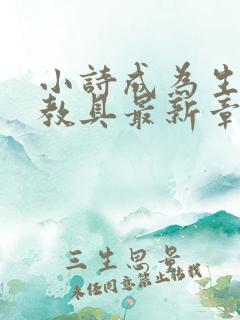 小詩成為生
教具最新章
三生思景
未任同意禁止转载